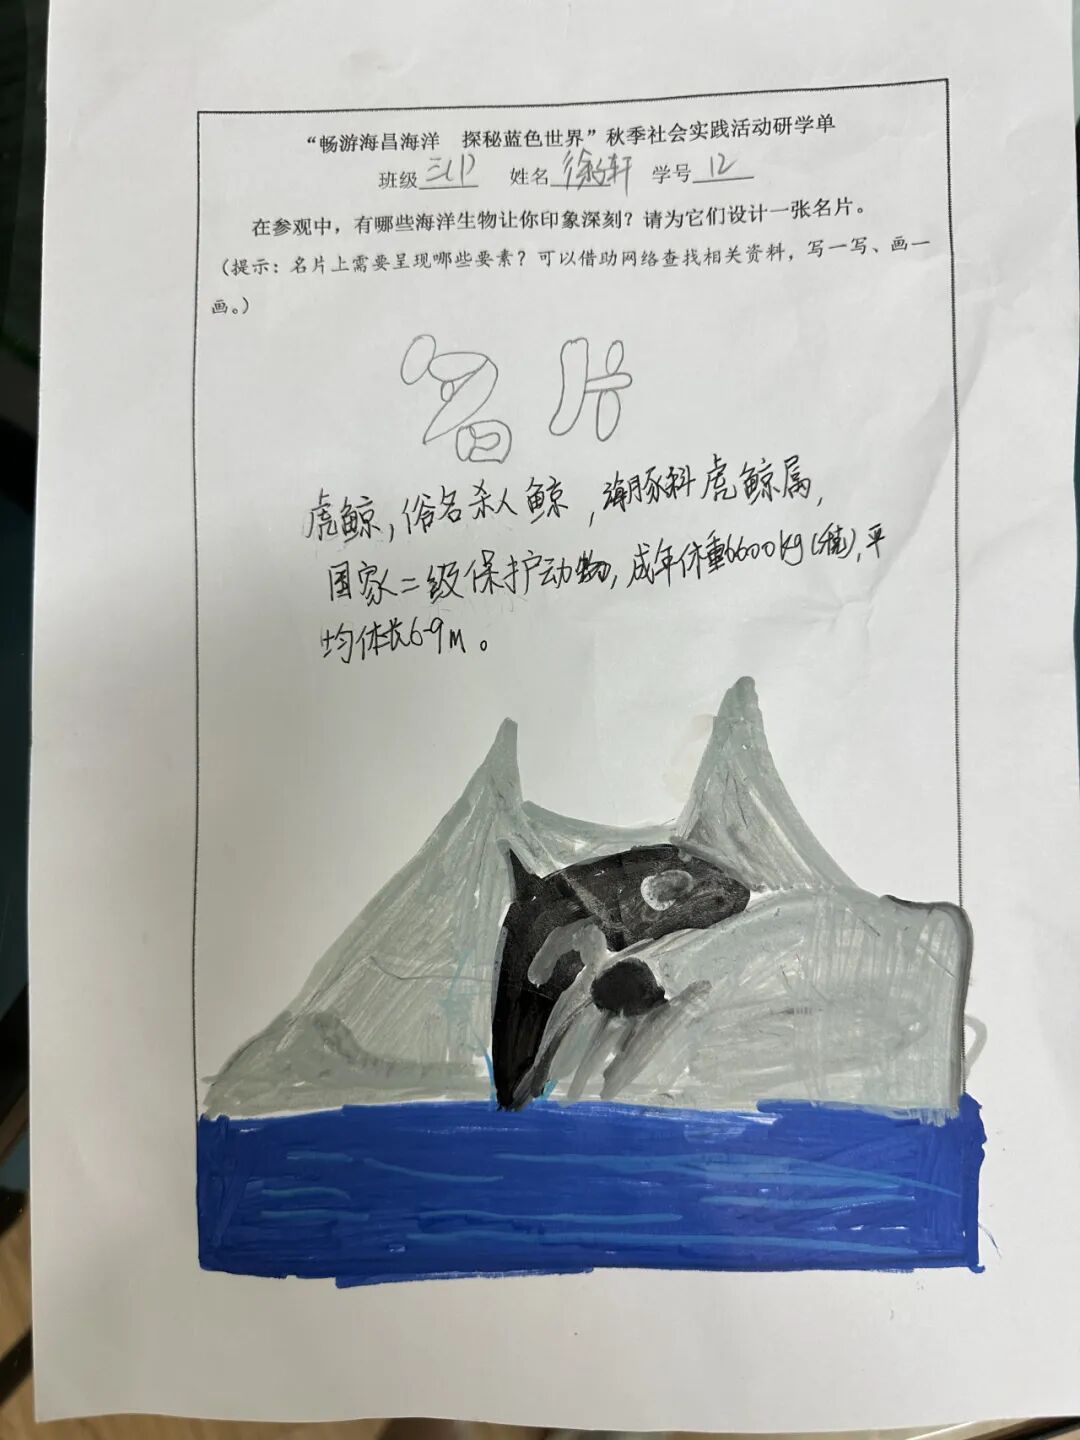 “畅游海昌海洋 探秘蓝色世界”秋季社会实践活动研学单
班级三(1) 姓名徐轩 学号12
在参观中，有哪些海洋生物让你印象深刻？请为它们设计一张名片。
（提示：名片上需要呈现哪些要素？可以借助网络查找相关资料，写一写、画一
画。）
名片
虎鲸,俗名杀人鲸,海豚科虎鲸属,
国家二级保护动物,成年体重6600kg(),平
均体长6-9m。